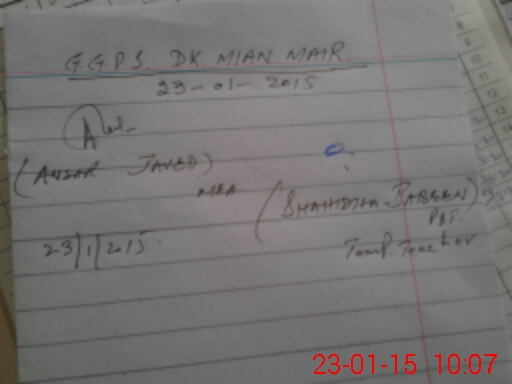 G.G.P.S. DK MIAN MAIR
23-01-2015
(ANSAR JAVED)
MEA
(SHAHIDHA JABEEN)
PST.
23/1/2015.
Temp. Teacher
23-01-15 10:07